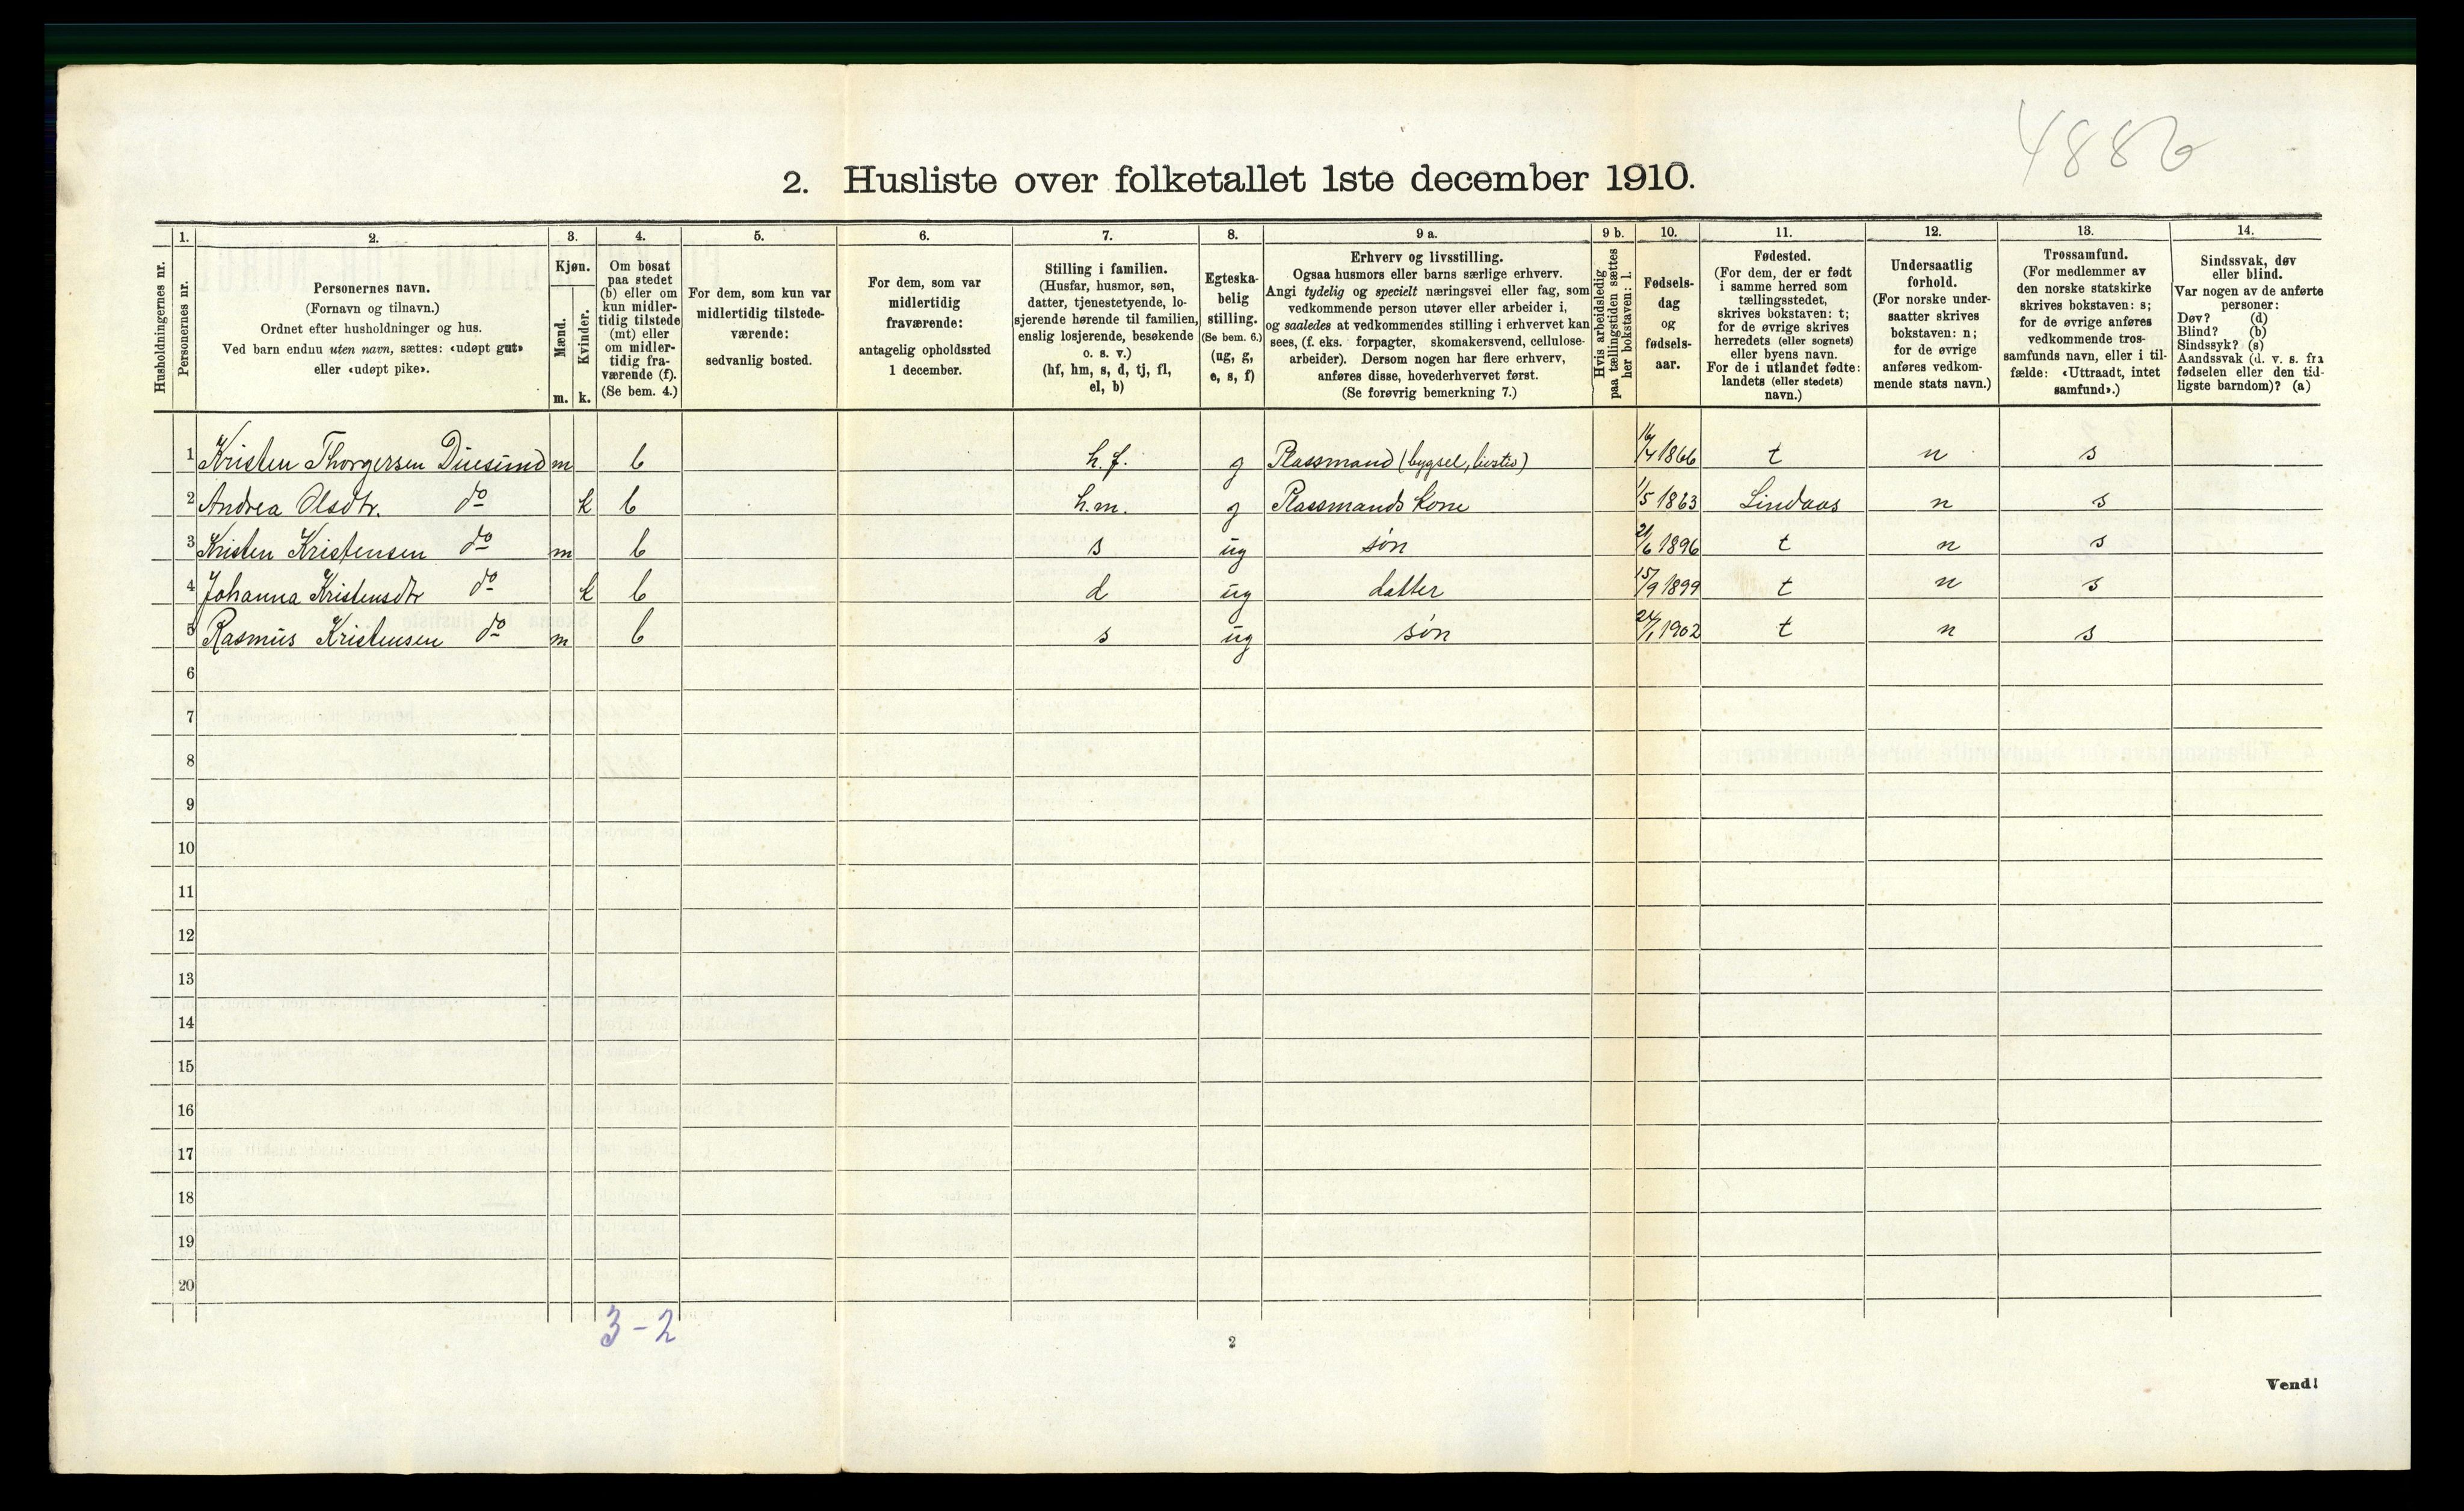 4886
2. Husliste over folketallet 1ste december 1910.
Husholdningernes nr.
1.
Personernes nr.
2.
Personernes navn.
(Fornavn og tilnavn.)
Ordnet efter husholdninger og hus.
Ved barn endnu uten navn, sættes: «udøpt gut»
eller «udøpt pike».
3.
Kjøn.
Mænd.
m.
Kvinder.
k.
4.
Om bosat
paa stedet
(b) eller om
kun midler-
tidig tilstede
(mt) eller
om midler-
tidig fra-
værende (f).
(Se bem. 4.)
5.
For dem, som kun var
midlertidig tilstede-
værende:
sedvanlig bosted.
6.
For dem, som var
midlertidig
fraværende:
antagelig opholdssted
1 december.
7.
Stilling i familien.
(Husfar, husmor, søn,
datter, tjenestetyende, lo-
sjerende hørende til familien,
enslig losjerende, besøkende
o. s. v.)
(hf, hm, s, d, tj, fl,
el, b)
8.
Egteska-
belig
stilling.
(Se bem. 6.)
(ug, g,
e, s, f)
9 a.
Erhverv og livsstilling.
Ogsaa husmors eller barns særlige erhverv.
Angi tydelig og specielt næringsvei eller fag, som
vedkommende person utøver eller arbeider i,
og saaledes at vedkommendes stilling i erhvervet kan
sees, (f. eks. forpagter, skomakersvend, cellulose-
arbeider). Dersom nogen har flere erhverv,
anføres disse, hovederhvervet først.
(Se forøvrig bemerkning 7.)
9 b.
Hvis arbeidsledig
paa tællingstiden sættes
her bokstaven: l.
10.
Fødsels-
dag
og
fødsels-
aar.
11.
Fødested.
(For dem, der er født
i samme herred som
tællingsstedet,
skrives bokstaven: t;
for de øvrige skrives
herredets (eller sognets)
eller byens navn.
For de i utlandet fødte:
landets (eller stedets)
navn.)
12.
Undersaatlig
forhold.
(For norske under-
saatter skrives
bokstaven: n;
for de øvrige
anføres vedkom-
mende stats navn.)
13.
Trossamfund.
(For medlemmer av
den norske statskirke
skrives bokstaven: s;
for de øvrige anføres
vedkommende tros-
samfunds navn, eller i til-
fælde: «Uttraadt, intet
samfund».)
14.
Sindssvak, døv
eller blind.
Var nogen av de anførte
personer:
Døv? (d)
Blind? (b)
Sindssyk? (s)
Aandssvak (d. v. s. fra
fødselen eller den tid-
ligste barndom)? (a)
1 Kristen Thorgersen Duesund m b h.f. g Plassmand (bygsel, livstid) 16/4 1866 t n s
2 Andrea Olsdtr. do k b h.m. g Plassmands kone 1/5 1863 Lindaas n s
3 Kristen Kristensen do m b s ug søn 21/6 1896 t n s
4 Johanna Kristensdtr do k b d ug datter 15/9 1899 t n s
5 Rasmus Kristensen do m b s ug søn 24/1 1902 t n s
6
7
8
9
10
11
12
13
14
15
16
17
18
19
20
3-2
2
Vend!